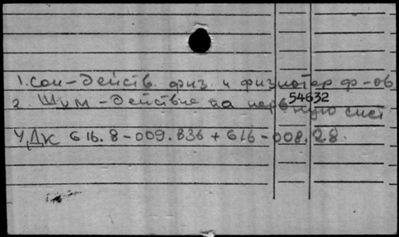 1. Сон - действ. физ. и физиотер ф-ов
2. Шум - действие на нервную сист
54632
УДК 616.8-009.836+616-008.28.